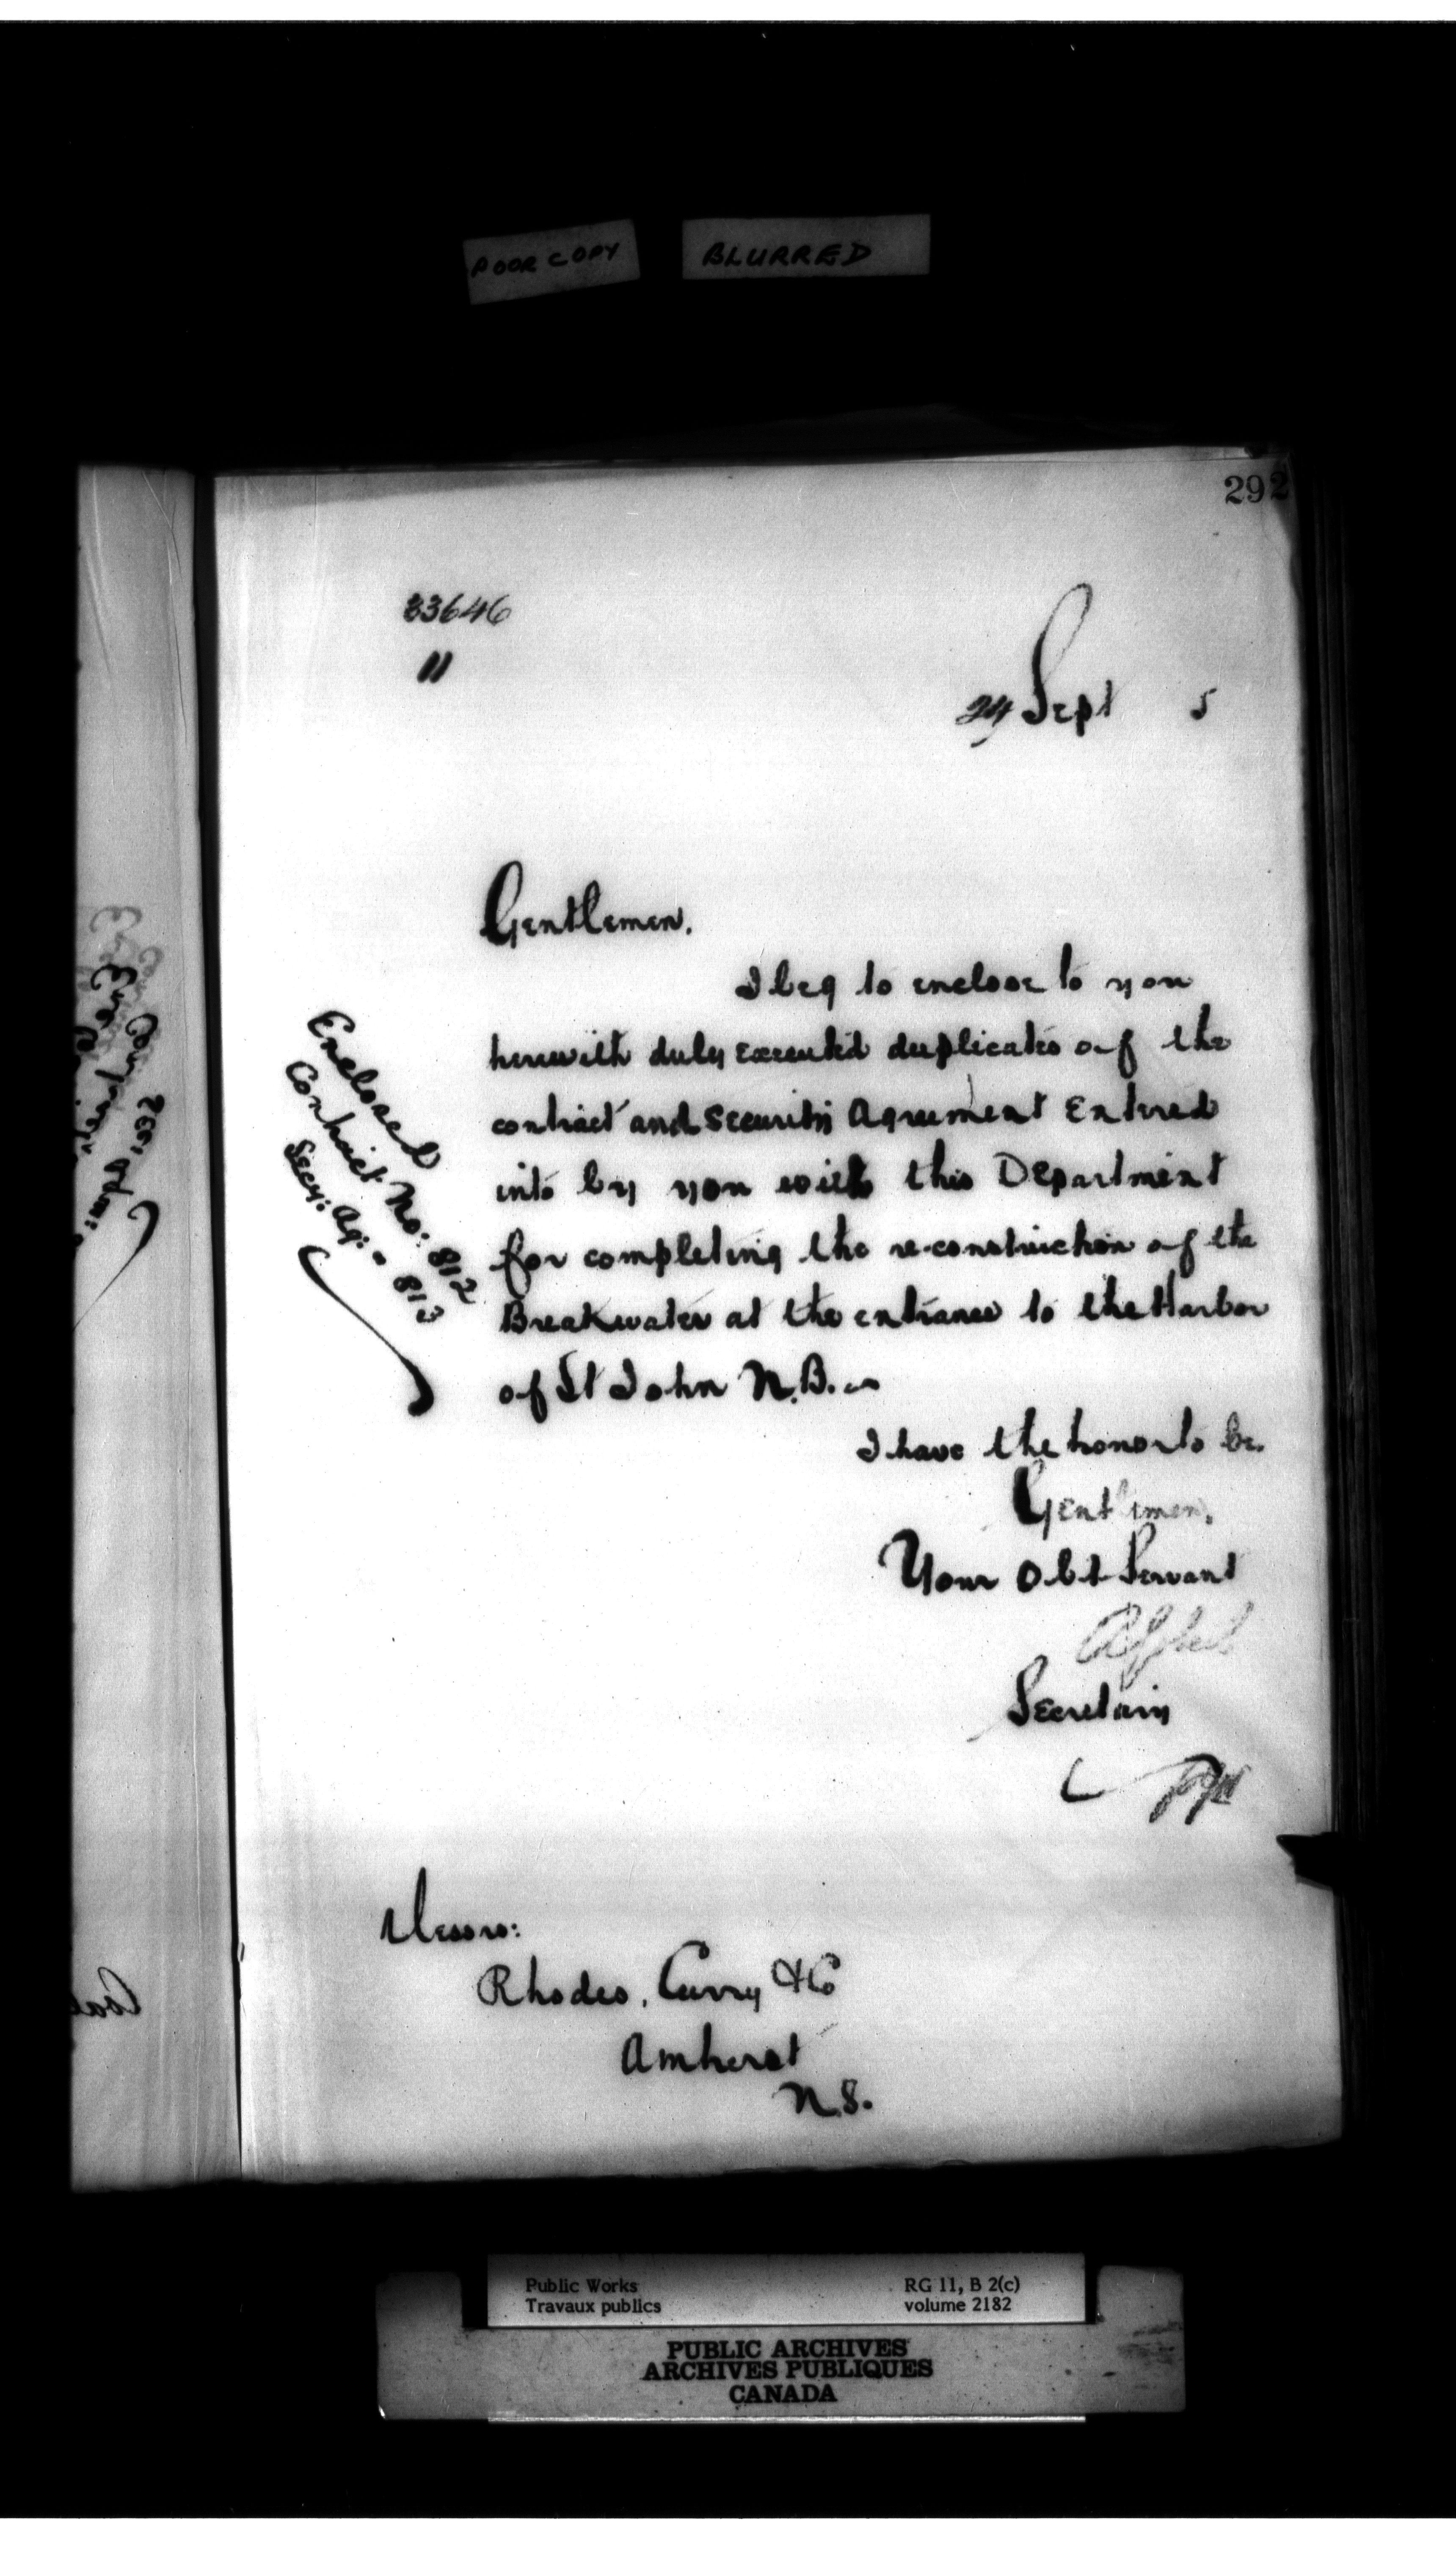 POOR COPY BLURRED
292
33646
11
24 Sept 5
Gentlemen,
I beg to enclose to you
herewith duly executed duplicates of the
contract and Security Agreement Entered
into by you with this Department
for completing the re-construction of the
Breakwater at the entrance to the Harbor
of St John N.B.
Enclosed
Contract No: 812
Secy: Ag: " 813
I have the honor to be.
Gentlemen,
Your Obt Servant
Secretary
Messrs:
Rhodes, Curry & Co
Amherst
N.S.
Public Works RG 11, B 2(c)
Travaux publics volume 2182
PUBLIC ARCHIVES
ARCHIVES PUBLIQUES
CANADA